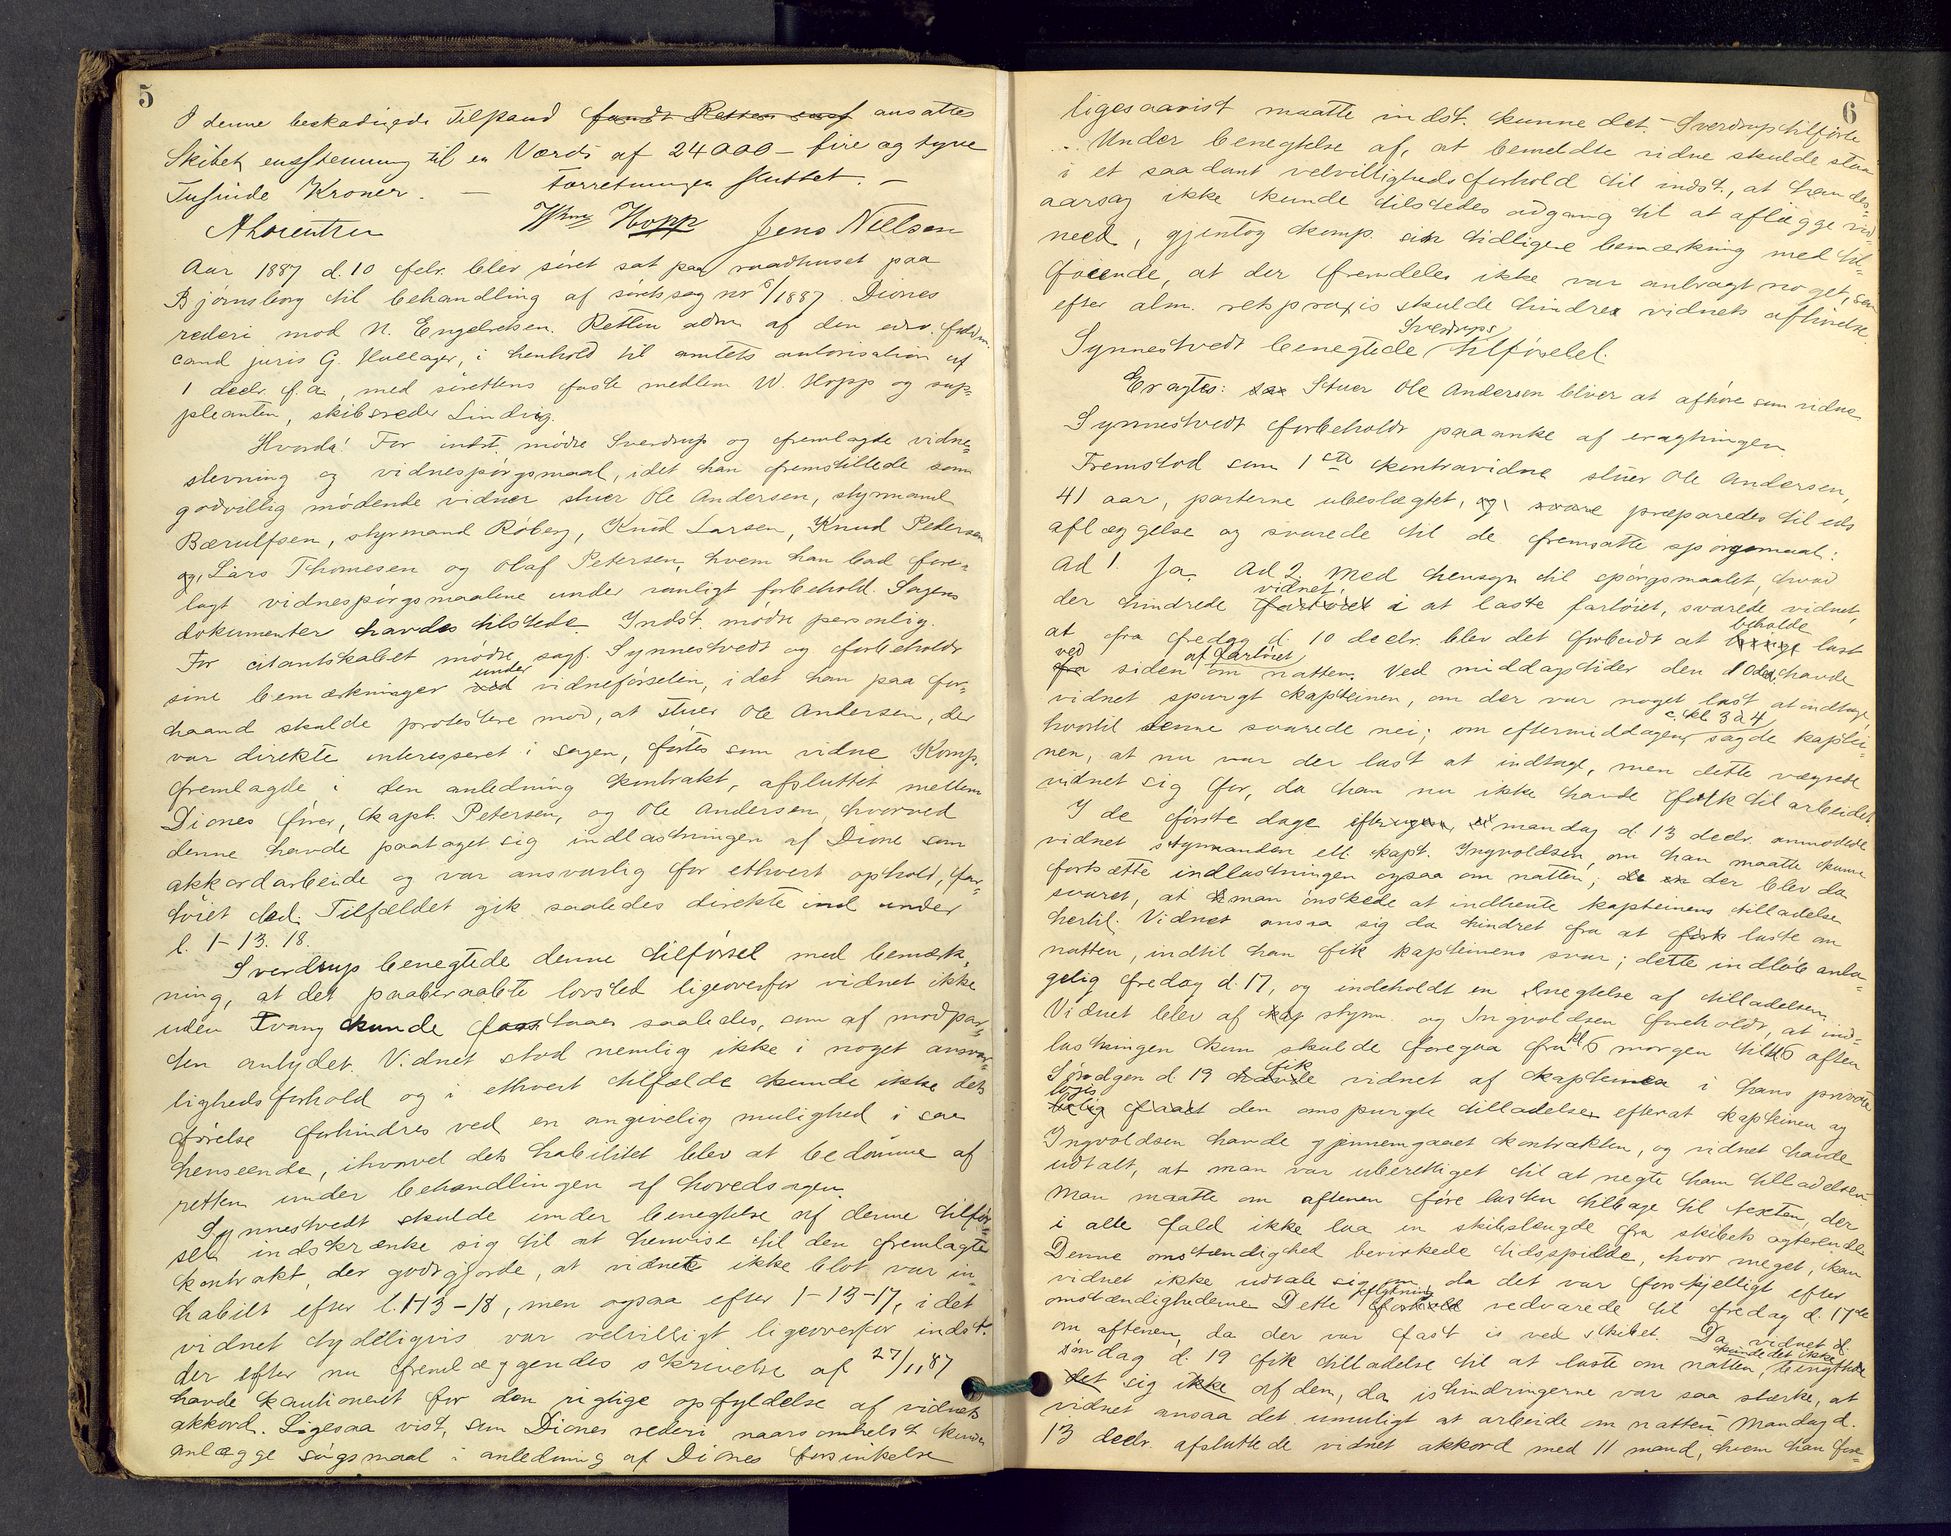 5
I denne beskadigede Tilstand fandt Retten enst ansattes
Skibet enstemmig til en Værdi af 24000 – fire og tyve
Tusinde Kroner. – Forretningen sluttet. –
Wm Hopp Jens Nielsen
Aar 1887 d. 10 febr. blev søret sat paa raadhuset paa
Bjørnsborg til behandling af søretssag nr 6/1887. Diones
rederi mod N. Engelretsen. Retten adm af den edsv. fuldm.
cand juris G. Hallager, i henhold til amtets autorisation af
1 decbr. f.a., med sørettens faste medlem W. Hopp og sup-
pleanten, skibsreder Lindvig.
Hvorda! For indst. mødte Sverdrup og fremlagde vidne-
stevning og vidnespørgsmaal, idet han fremstillede som
godvillig mødende vidner stuer Ole Andersen, styrmand
Bærulfsen, styrmand Roberg, Knud Larsen, Knud Petersen
og Lars Thomesen og Olaf Petersen, hvem han bad fore-
lagt vidnespørgsmaalene under vanligt forbehold. Sagens
dokumenter havdes tilstede. Indst. mødte personlig.
For citantskabet mødte sagf. Synnestvedt og forbeholdt
sine bemærkninger ved under vidneførselen, idet han paa for-
haand skulde protestere mod, at stuer Ole Andersen, der
var direkte interesseret i sagen, førtes som vidne. Komp.
fremlagde i den anledning kontrakt, afsluttet mellem
Diones fører, kapt. Petersen, og Ole Andersen, hvorved
denne havde paataget sig indlastningen af Dione som
akkordarbeide og var ansvarlig for ethvert ophold, far-
tøiet led. Tilfældet gik saaledes direkte ind under
l. 1–13. 18.
Sverdrup benegtede denne tilførsel med bemærk-
ning, at det paaberaabte lovsted ligeoverfor vidnet ikke
uden Tvang kunde forstaaes saaledes, som af modpar-
ten antydet. Vidnet stod nemlig ikke i noget ansvar-
lighedsforhold og i ethvert tilfælde kunde ikke dets
førelse forhindres ved en angivelig mulighed i saa
henseende, ihvorvel dets habilitet blev at bedømme af
retten under behandlingen af hovedsagen.
Synnestvedt skulde under benegtelse af denne tilfør-
sel indskrænke sig til at henvise til den fremlagte
kontrakt, der godtgjorde, at vidnet ikke blot var in-
habilt efter l. 1–13–18, men ogsaa efter 1–13–17, idet
vidnet tydeligvis var velvilligt ligeoverfor indst.
der efter nu fremlæggendes skrivelse af 27/1 87
havde kautioneret for den rigtige opfyldelse af vidnets
akkord. Ligesaa vist, som Diones rederi naarsomhelst kunde
anlægge søgsmaal i anledning af Diones forsinkelse
6
ligesaavist maatte indst. kunne det. – Sverdrup tilførte
: Under benegtelse af, at bemeldte vidne skulde staa
i et saadant velvillighedsforhold til indst., at han des-
aarsag ikke kunde tilstedes adgang til at aflægge vid-
need, gjentog komp. sin tidligere bemærkning med til-
føiende, at der fremdeles ikke var anbragt noget, som
efter alm. retspraxis skulde hindre vidnets afhørelse.
Synnestvedt benegtede Sverdrups tilførelel.
Eragtes: Stuer Ole Andersen bliver at afhøre som vidne
Synnestvedt forbeholdt paaanke af eragtningen
Fremstod som 1ste kontravidne stuer Ole Andersen,
41 aar, parterne ubeslægtet, og svare præparedes til eds
aflæggelse og svarede til de fremsatte spørgsmaal:
Ad 1. Ja. Ad 2. Med hensyn til spørgsmaalet, hvad
der hindrede fartøiet vidnet i at laste fartøiet, svarede vidnet,
at fra fredag d. 10 decbr. blev det forbudt at bringe beholde last
fra ved siden af fartøiet om natten. Ved middagstider den 10de havde
vidnet spurgt kapteinen, om der var noget last at indtage,
hvortil denne svarede nei; om eftermiddagen c. kl 3 à 4 sagde kaptei-
nen, at nu var der last at indtage, men dette vægrede
vidnet sig for, da han nu ikke havde folk til arbeidet
I de første dage mandag d. 13 decbr. anmodede
vidnet styrmanden ell. kapt. Ingvoldsen, om han maatte kunne
fortsætte indlastningen ogsaa om natten; der blev da
svaret, at man ønskede at indhente kapteinens tilladelse
hertil. Vidnet ansaa sig da hindret fra at laste om
natten, indtil han fik kapteinens svar; dette indløb anta-
gelig fredag d. 17, og indeholdt en negtelse af tilladelsen.
Vidnet blev af kap styrm. og Ingvoldsen foreholdt, at ind-
lastningen kun skulde foregaa fra kl 6 morgen til kl 6 aften
Søndgen d. 19 havde fik vidnet af kapteinen i hans private
bolig logis faaet den omspurgte tilladelse efterat kapteinen og
Ingvoldsen havde gjennemgaaet kontrakten, og vidnet havde
udtalt, at man var uberettiget til at negte ham tilladelsen.
Man maatte om aftenen føre lasten tilbage til texten, der
i alle fald ikke laa en skibslængde fra skibets agterende
Denne omstændighed bevirkede tidsspilde, hvor meget, kan
vidnet ikke udtale sig om, da det var forskjelligt efter
omstændighederne. Dette forhold vedvarede til fredag d. 17de
om aftenen, da der var fast is ved skibet. Da vidnet d.
søndag d. 19 fik tilladelse til at laste om natten, kunde det ikke benyttede
det sig ikke af den, da ishindringerne var saa stærke, at
vidnet ansaa det umuligt at arbeide om natten. Mandag d.
13 decbr. afsluttede vidnet akkord med 11 mand, hvem han fore-